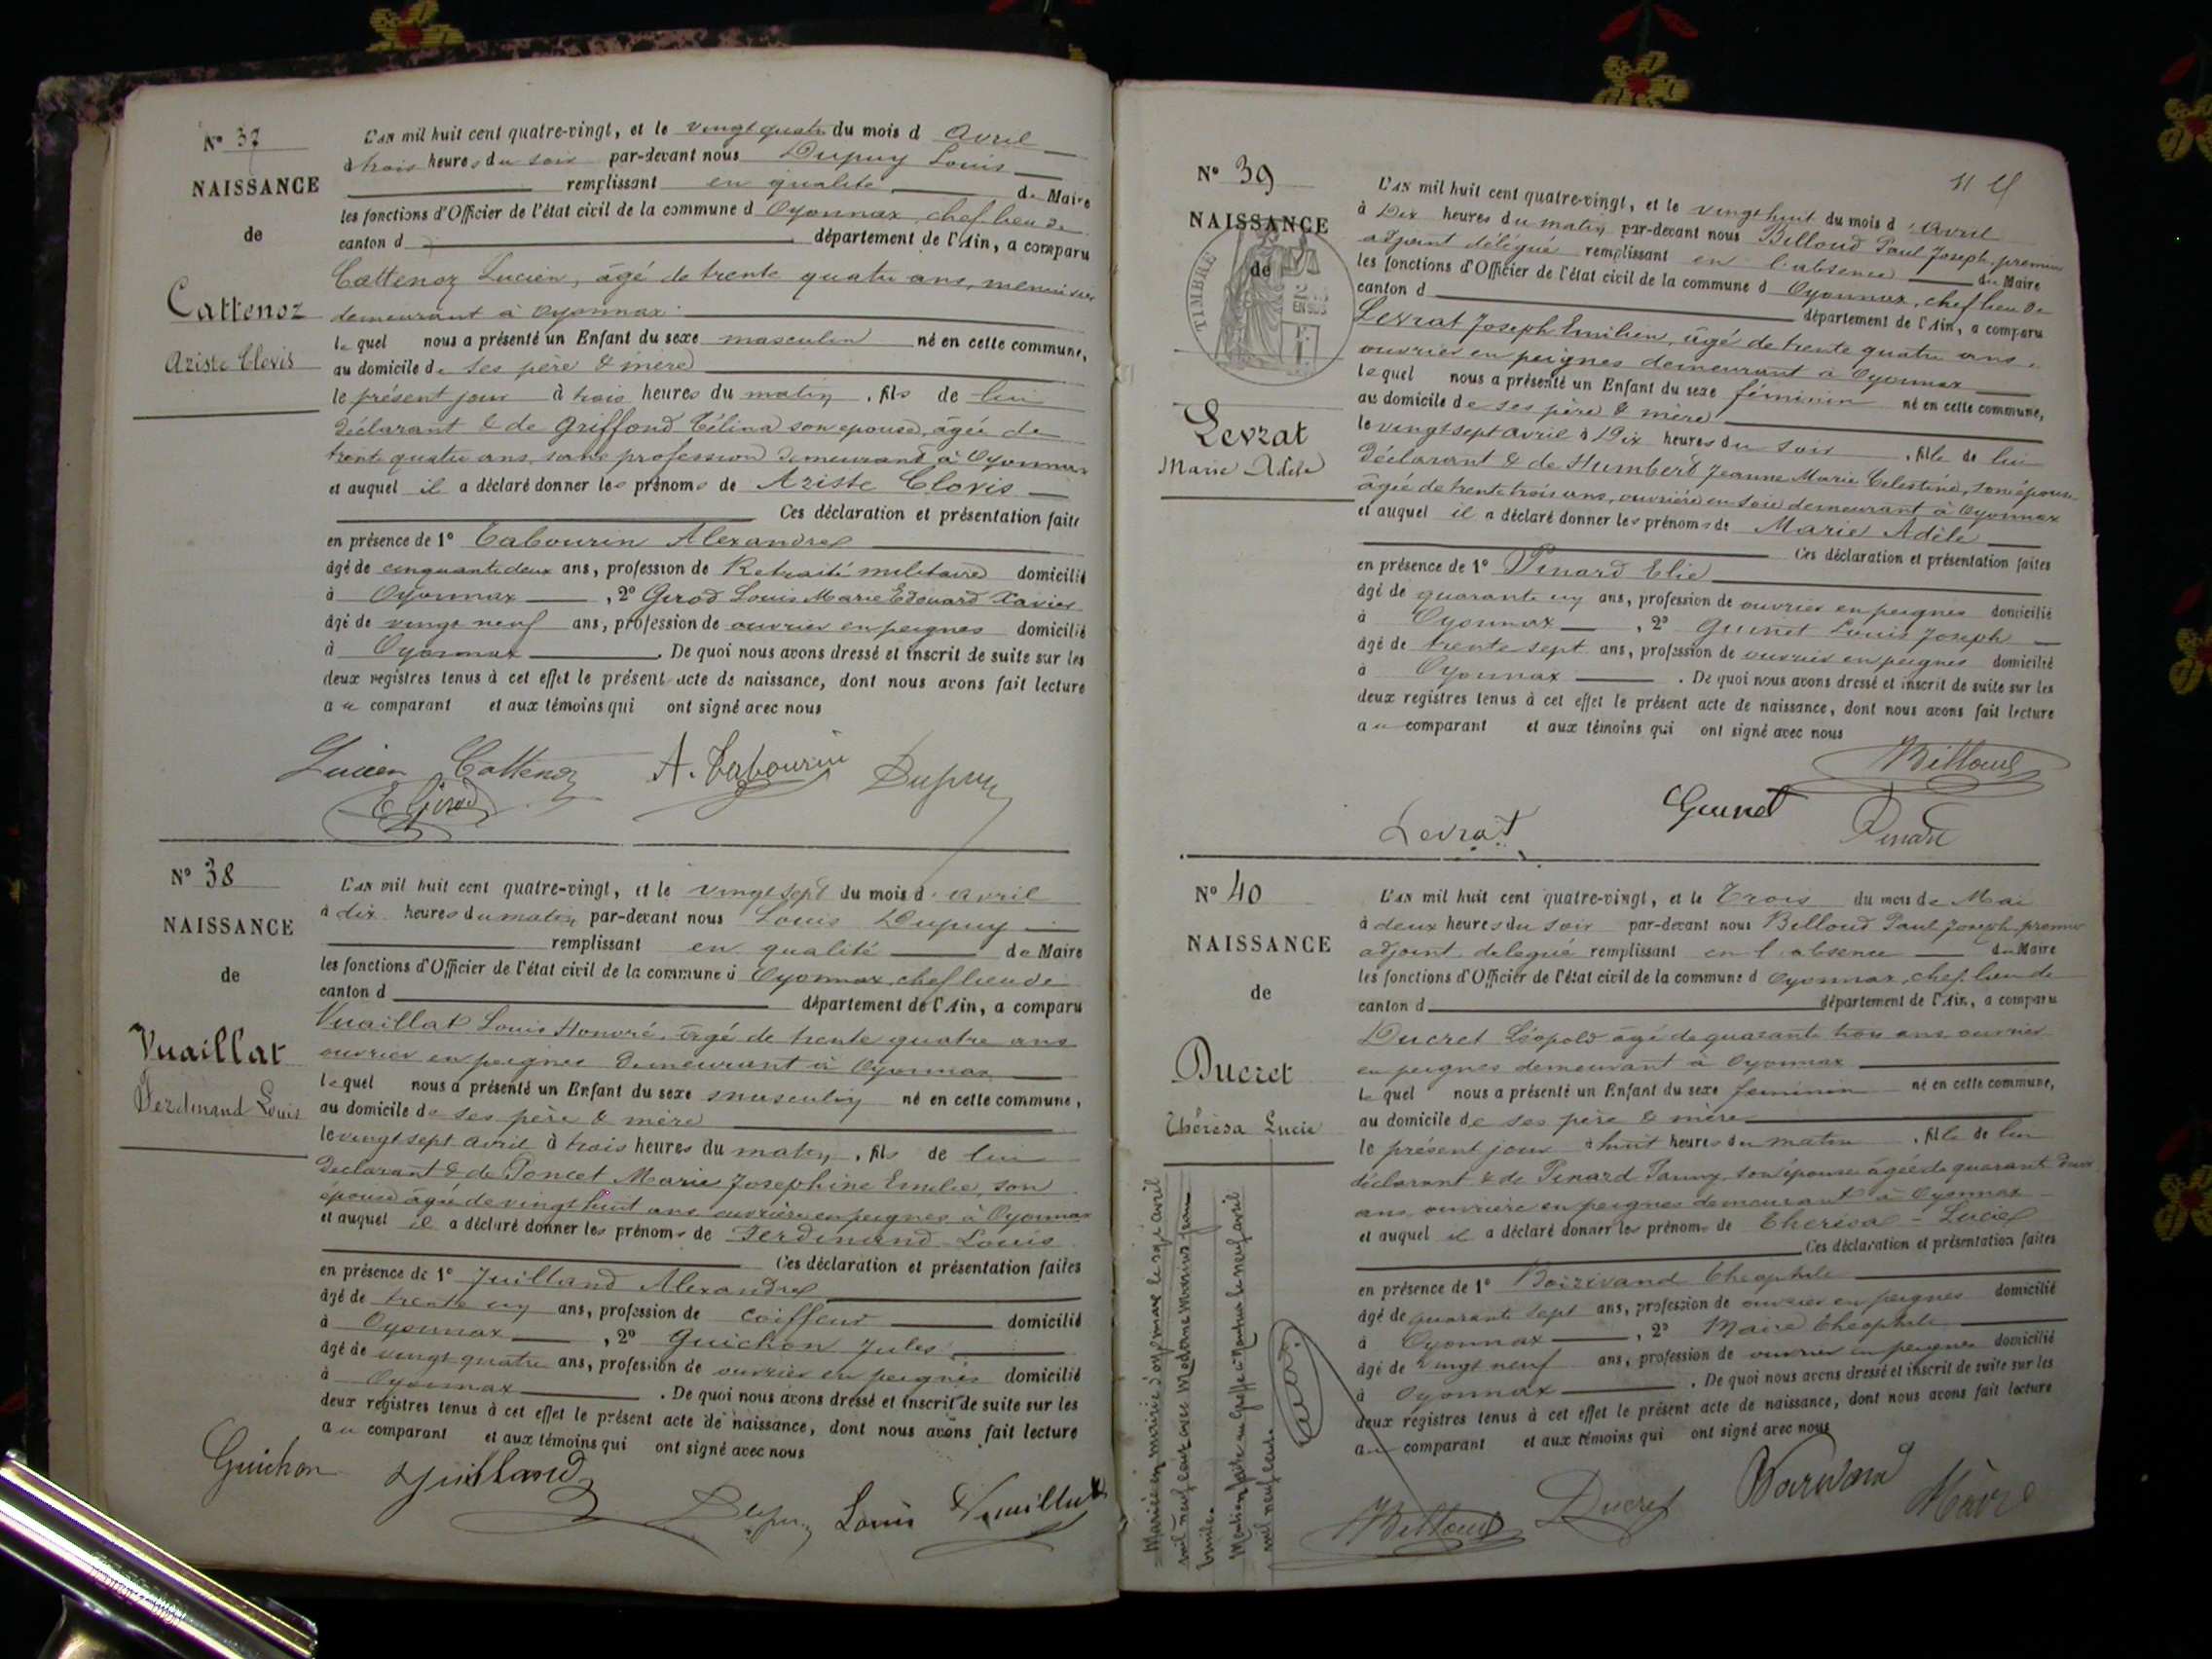 N° 37
NAISSANCE
de
Cattenoz
Ariste Clovis
L'an mil huit cent quatre-vingt, et le vingt quatre du mois d avril
à trois heures du soir par-devant nous Dupuy Louis
remplissant en qualité de Maire
les fonctions d'Officier de l'état civil de la commune d Oyonnax, chef lieu de
canton d département de l'Ain, a comparu
Cattenoz Lucien, âgé de trente quatre ans, menuisier
demeurant à Oyonnax
lequel nous a présenté un Enfant du sexe masculin né en cette commune,
au domicile de ses père & mère
le présent jour à trois heures du matin, fils de lui
déclarant & de Griffond Célina son épouse, âgée de
trente quatre ans, sans profession demeurant à Oyonnax
et auquel il a déclaré donner les prénoms de Ariste Clovis
Ces déclaration et présentation faite
en présence de 1° Tabourin Alexandre
âgé de cinquante deux ans, profession de Retraité militaire domicilié
à Oyonnax, 2° Girod Louis Marie Edouard Xavier
âgé de vingt neuf ans, profession de ouvrier en peignes domicilié
à Oyonnax. De quoi nous avons dressé et inscrit de suite sur les
deux registres tenus à cet effet le présent acte de naissance, dont nous avons fait lecture
au comparant et aux témoins qui ont signé avec nous
Lucien Cattenoz A. Tabourin Dupuy
E Girod
N° 38
NAISSANCE
de
Vuaillat
Ferdinand Louis
L'an mil huit cent quatre-vingt, et le vingt sept du mois d avril
à dix heures du matin par-devant nous Louis Dupuy
remplissant en qualité de Maire
les fonctions d'Officier de l'état civil de la commune d Oyonnax, chef lieu de
canton d département de l'Ain, a comparu
Vuaillat Louis Honoré, âgé de trente quatre ans
ouvrier en peignes demeurant à Oyonnax
lequel nous a présenté un Enfant du sexe masculin né en cette commune,
au domicile de ses père & mère
le vingt sept avril à trois heures du matin, fils de lui
déclarant & de Poncet Marie Josephine Emilie, son
épouse âgée de vingt huit ans ouvrière en peignes à Oyonnax
et auquel il a déclaré donner les prénoms de Ferdinand Louis
Ces déclaration et présentation faites
en présence de 1° Juilland Alexandre
âgé de trente un ans, profession de coiffeur domicilié
à Oyonnax, 2° Guichon Jules
âgé de vingt quatre ans, profession de ouvrier en peignes domicilié
à Oyonnax. De quoi nous avons dressé et inscrit de suite sur les
deux registres tenus à cet effet le présent acte de naissance, dont nous avons fait lecture
au comparant et aux témoins qui ont signé avec nous
Guichon Juilland Dupuy Louis Vuaillat
N° 39
NAISSANCE
de
TIMBRE
Levrat
Marie Adèle
L'an mil huit cent quatre-vingt, et le vingt huit du mois d avril
à Dix heures du matin par-devant nous Billoud Paul Joseph, premier
adjoint délégué remplissant en l'absence du Maire
les fonctions d'Officier de l'état civil de la commune d Oyonnax, chef lieu de
canton d département de l'Ain, a comparu
Levrat Joseph Emilien, âgé de trente quatre ans,
ouvrier en peignes demeurant à Oyonnax
lequel nous a présenté un Enfant du sexe féminin né en cette commune,
au domicile de ses père & mère
le vingt sept avril à Dix heures du soir, fille de lui
déclarant & de Humbert Jeanne Marie Celestine, son épouse
âgée de trente trois ans, ouvrière en soie demeurant à Oyonnax
et auquel il a déclaré donner les prénoms de Marie Adèle
Ces déclaration et présentation faites
en présence de 1° Pinard Elie
âgé de quarante un ans, profession de ouvrier en peignes domicilié
à Oyonnax, 2° Guinet Louis Joseph
âgé de trente sept ans, profession de ouvrier en peignes domicilié
à Oyonnax. De quoi nous avons dressé et inscrit de suite sur les
deux registres tenus à cet effet le présent acte de naissance, dont nous avons fait lecture
au comparant et aux témoins qui ont signé avec nous
Billoud
Levrat Guinet Pinard
N° 40
NAISSANCE
de
Ducret
Thérèsa Lucie
L'an mil huit cent quatre-vingt, et le Trois du mois de Mai
à deux heures du soir par-devant nous Billoud Paul Joseph premier
adjoint délégué remplissant en l'absence du Maire
les fonctions d'Officier de l'état civil de la commune d Oyonnax, chef lieu de
canton d département de l'Ain, a comparu
Ducret Léopold âgé de quarante trois ans ouvrier
en peignes demeurant à Oyonnax
lequel nous a présenté un Enfant du sexe féminin né en cette commune,
au domicile de ses père & mère
le présent jour à huit heures du matin, fille de lui
déclarant & de Pinard Fanny, son épouse âgée de quarante deux
ans ouvrière en peignes demeurant à Oyonnax
et auquel il a déclaré donner les prénoms de Therésa - Lucie
Ces déclaration et présentation faites
en présence de 1° Boirivand Théophile
âgé de quarante sept ans, profession de ouvrier en peignes domicilié
à Oyonnax, 2° Maire Théophile
âgé de vingt neuf ans, profession de ouvrier en peignes domicilié
à Oyonnax. De quoi nous avons dressé et inscrit de suite sur les
deux registres tenus à cet effet le présent acte de naissance, dont nous avons fait lecture
au comparant et aux témoins qui ont signé avec nous
Billoud Ducret Maire
Mariée en mairie d'Oyonnax le sept avril
mil neuf cent avec Marius Jean
Mention faite au Greffe à Nantua le neuf avril
mil neuf cent.